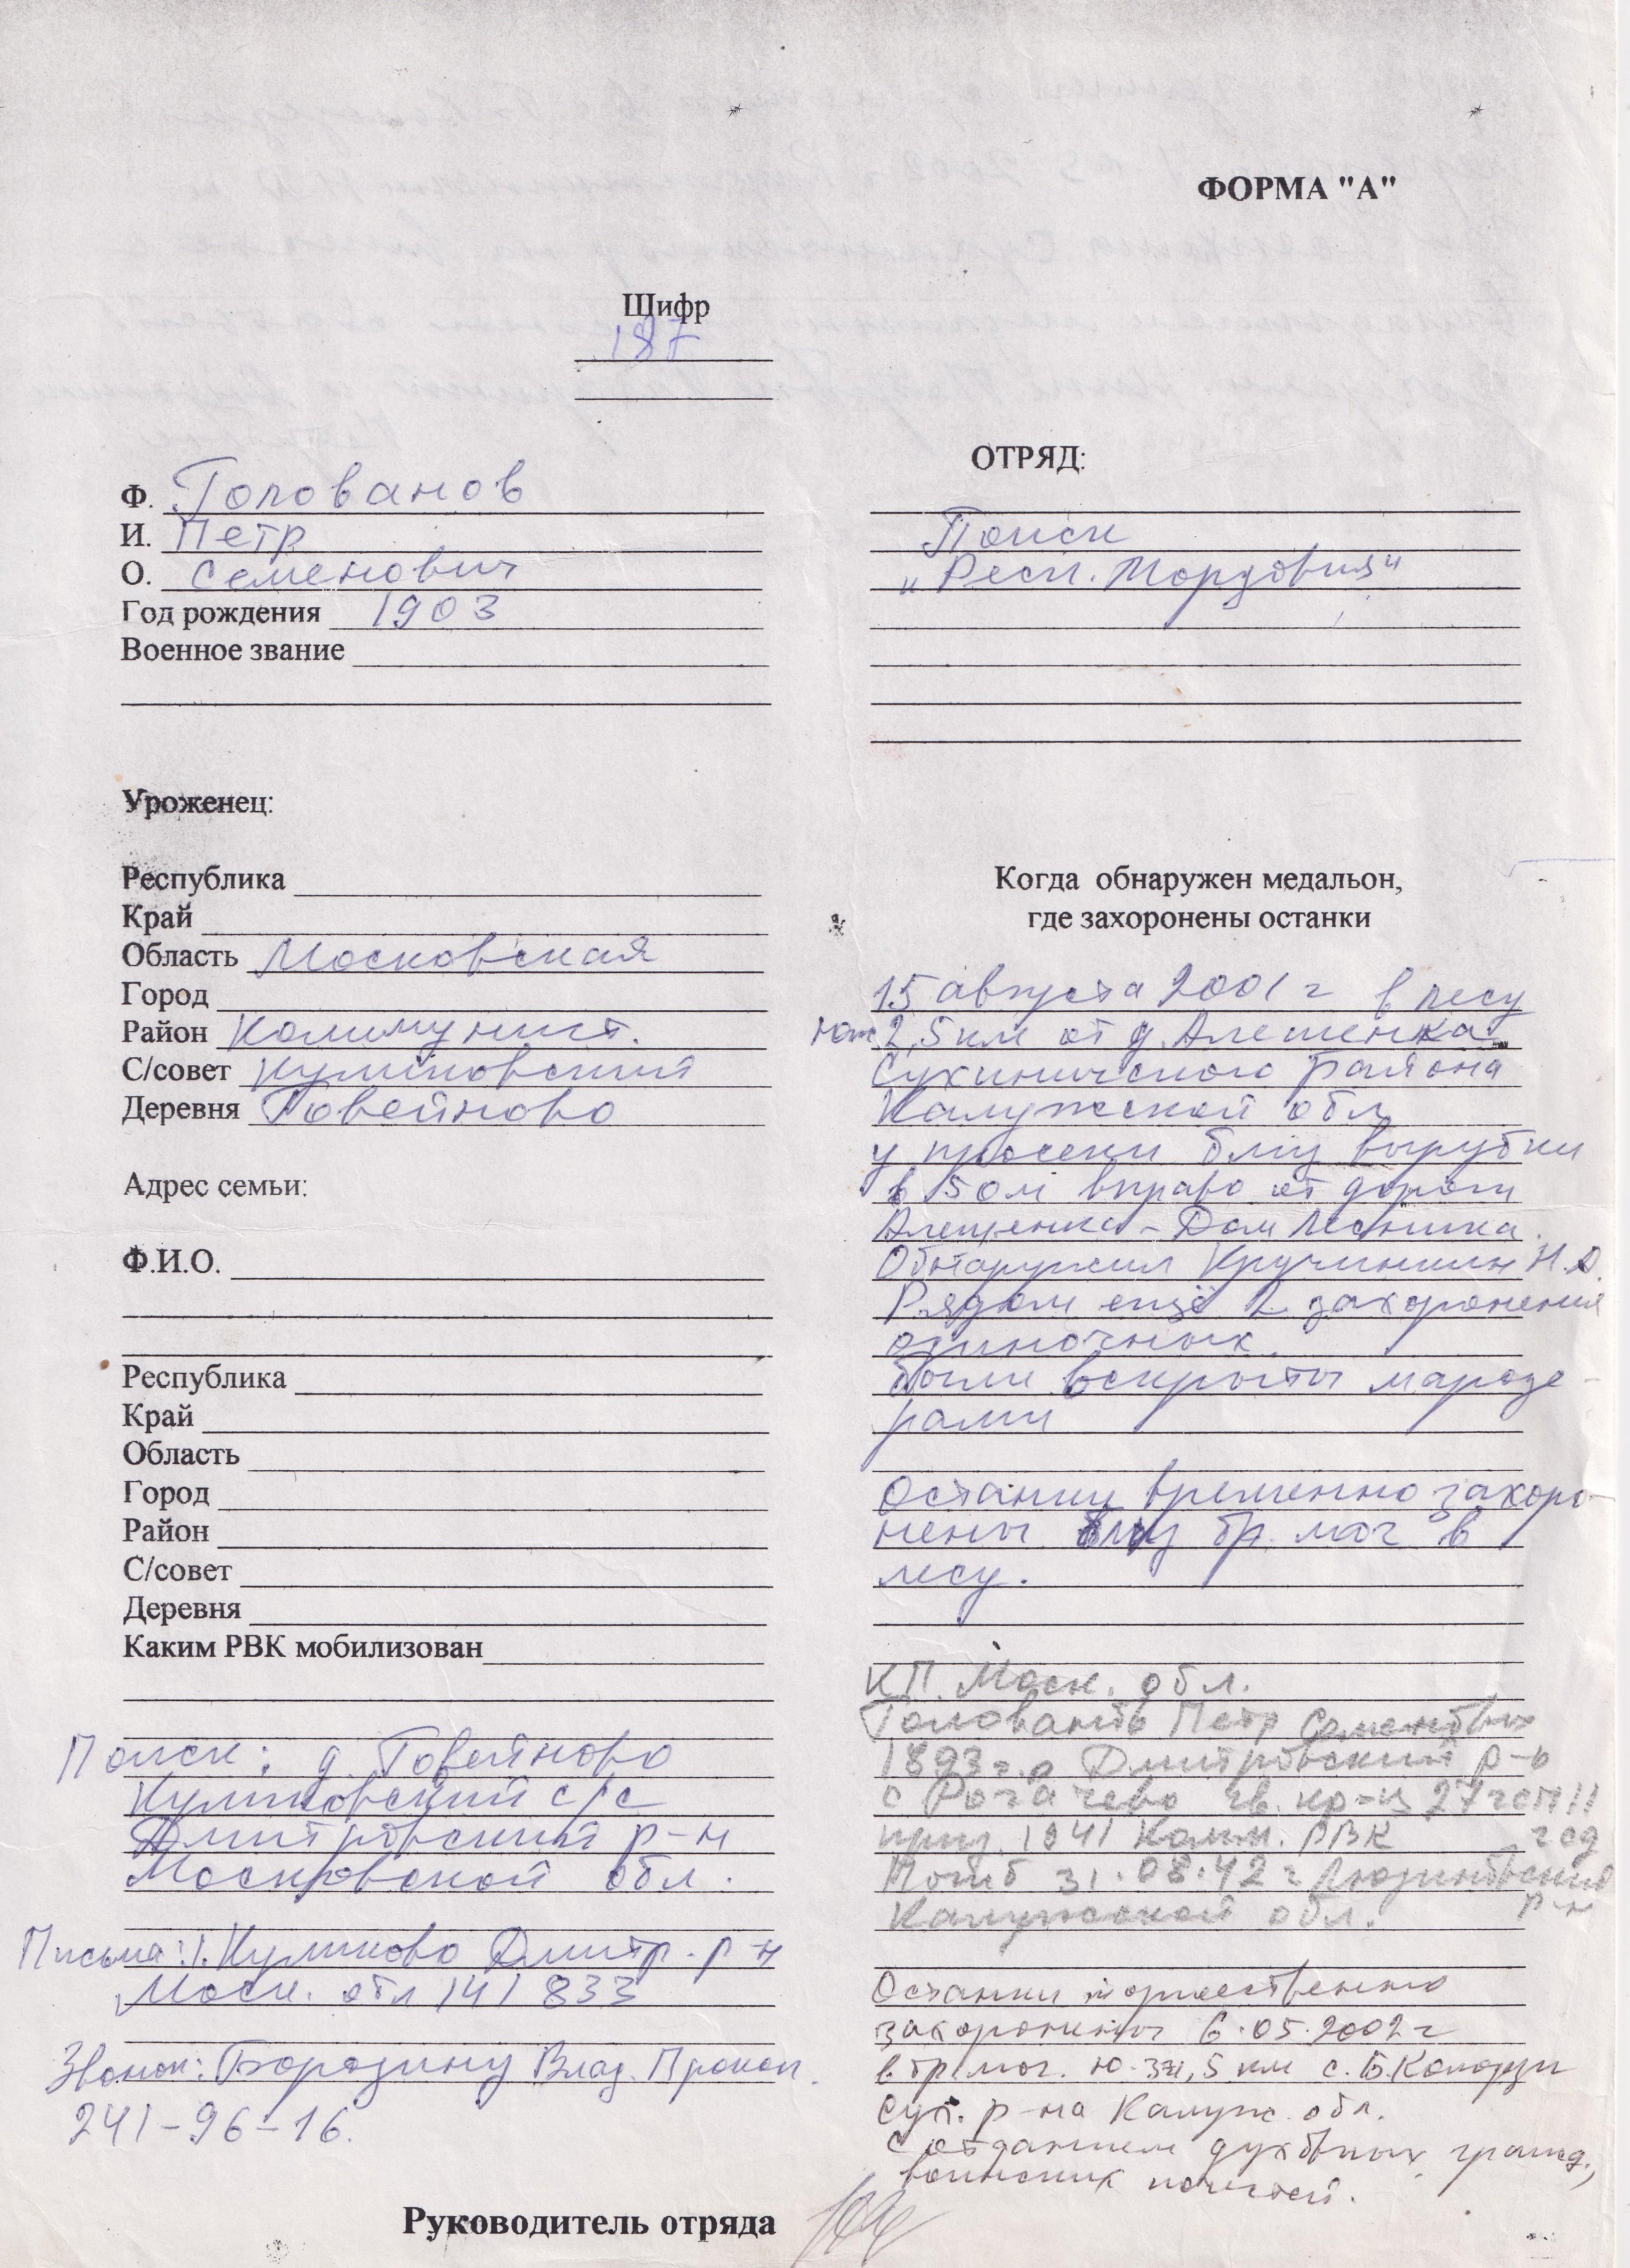 ФОРМА "А"
Шифр
187
Ф. Голованов
И. Петр
О. Семенович
Год рождения 1903
Военное звание
ОТРЯД:
Поиск
"Респ. Мордовия"
Уроженец:
Республика
Край
Область Московская
Город
Район Коммунист.
С/совет Куликовский
Деревня Говейново
Адрес семьи:
Ф.И.О.
Республика
Край
Область
Город
Район
С/совет
Деревня
Каким РВК мобилизован
Поиск: д. Говейново
Куликовский с/с
Дмитровский р-н
Московской обл.
Письма: 1. Куликово Дмитр. р-н
Моск. обл 141833
Звонок: Бородину Влад. Прокоп.
241-96-16.
Когда обнаружен медальон,
где захоронены останки
15 августа 2001 г в лесу
2,5 км от д. Алешенка
Сухиничского района
Калужской обл
у просеки близ вырубки
в 50м вправо от дороги
Алешенка - Дом Лесника.
Обнаружил Кручинкин Н.А.
Рядом ещё 2 захоронения
одиночных.
были вскрыты мароде-
рами
Останки временно захоро-
нены близ бр. мог в
лесу.
КП. Моск. обл.
Голованов Петр Семенович
1893 г.р Дмитровский р-н
с Рогачево гв. кр-ц 27 гсп!!
приз. 1941 Комм. РВК
Погиб 31.08.42 г Людиновский
р-н
Калужской обл.
Останки торжественно
захоронены 6.05.2002 г
в бр мог. 5 км с. Б.Колодези
Сух. р-на Калуж. обл.
с отданием духовных, гражд.,
воинских почестей.
Руководитель отряда